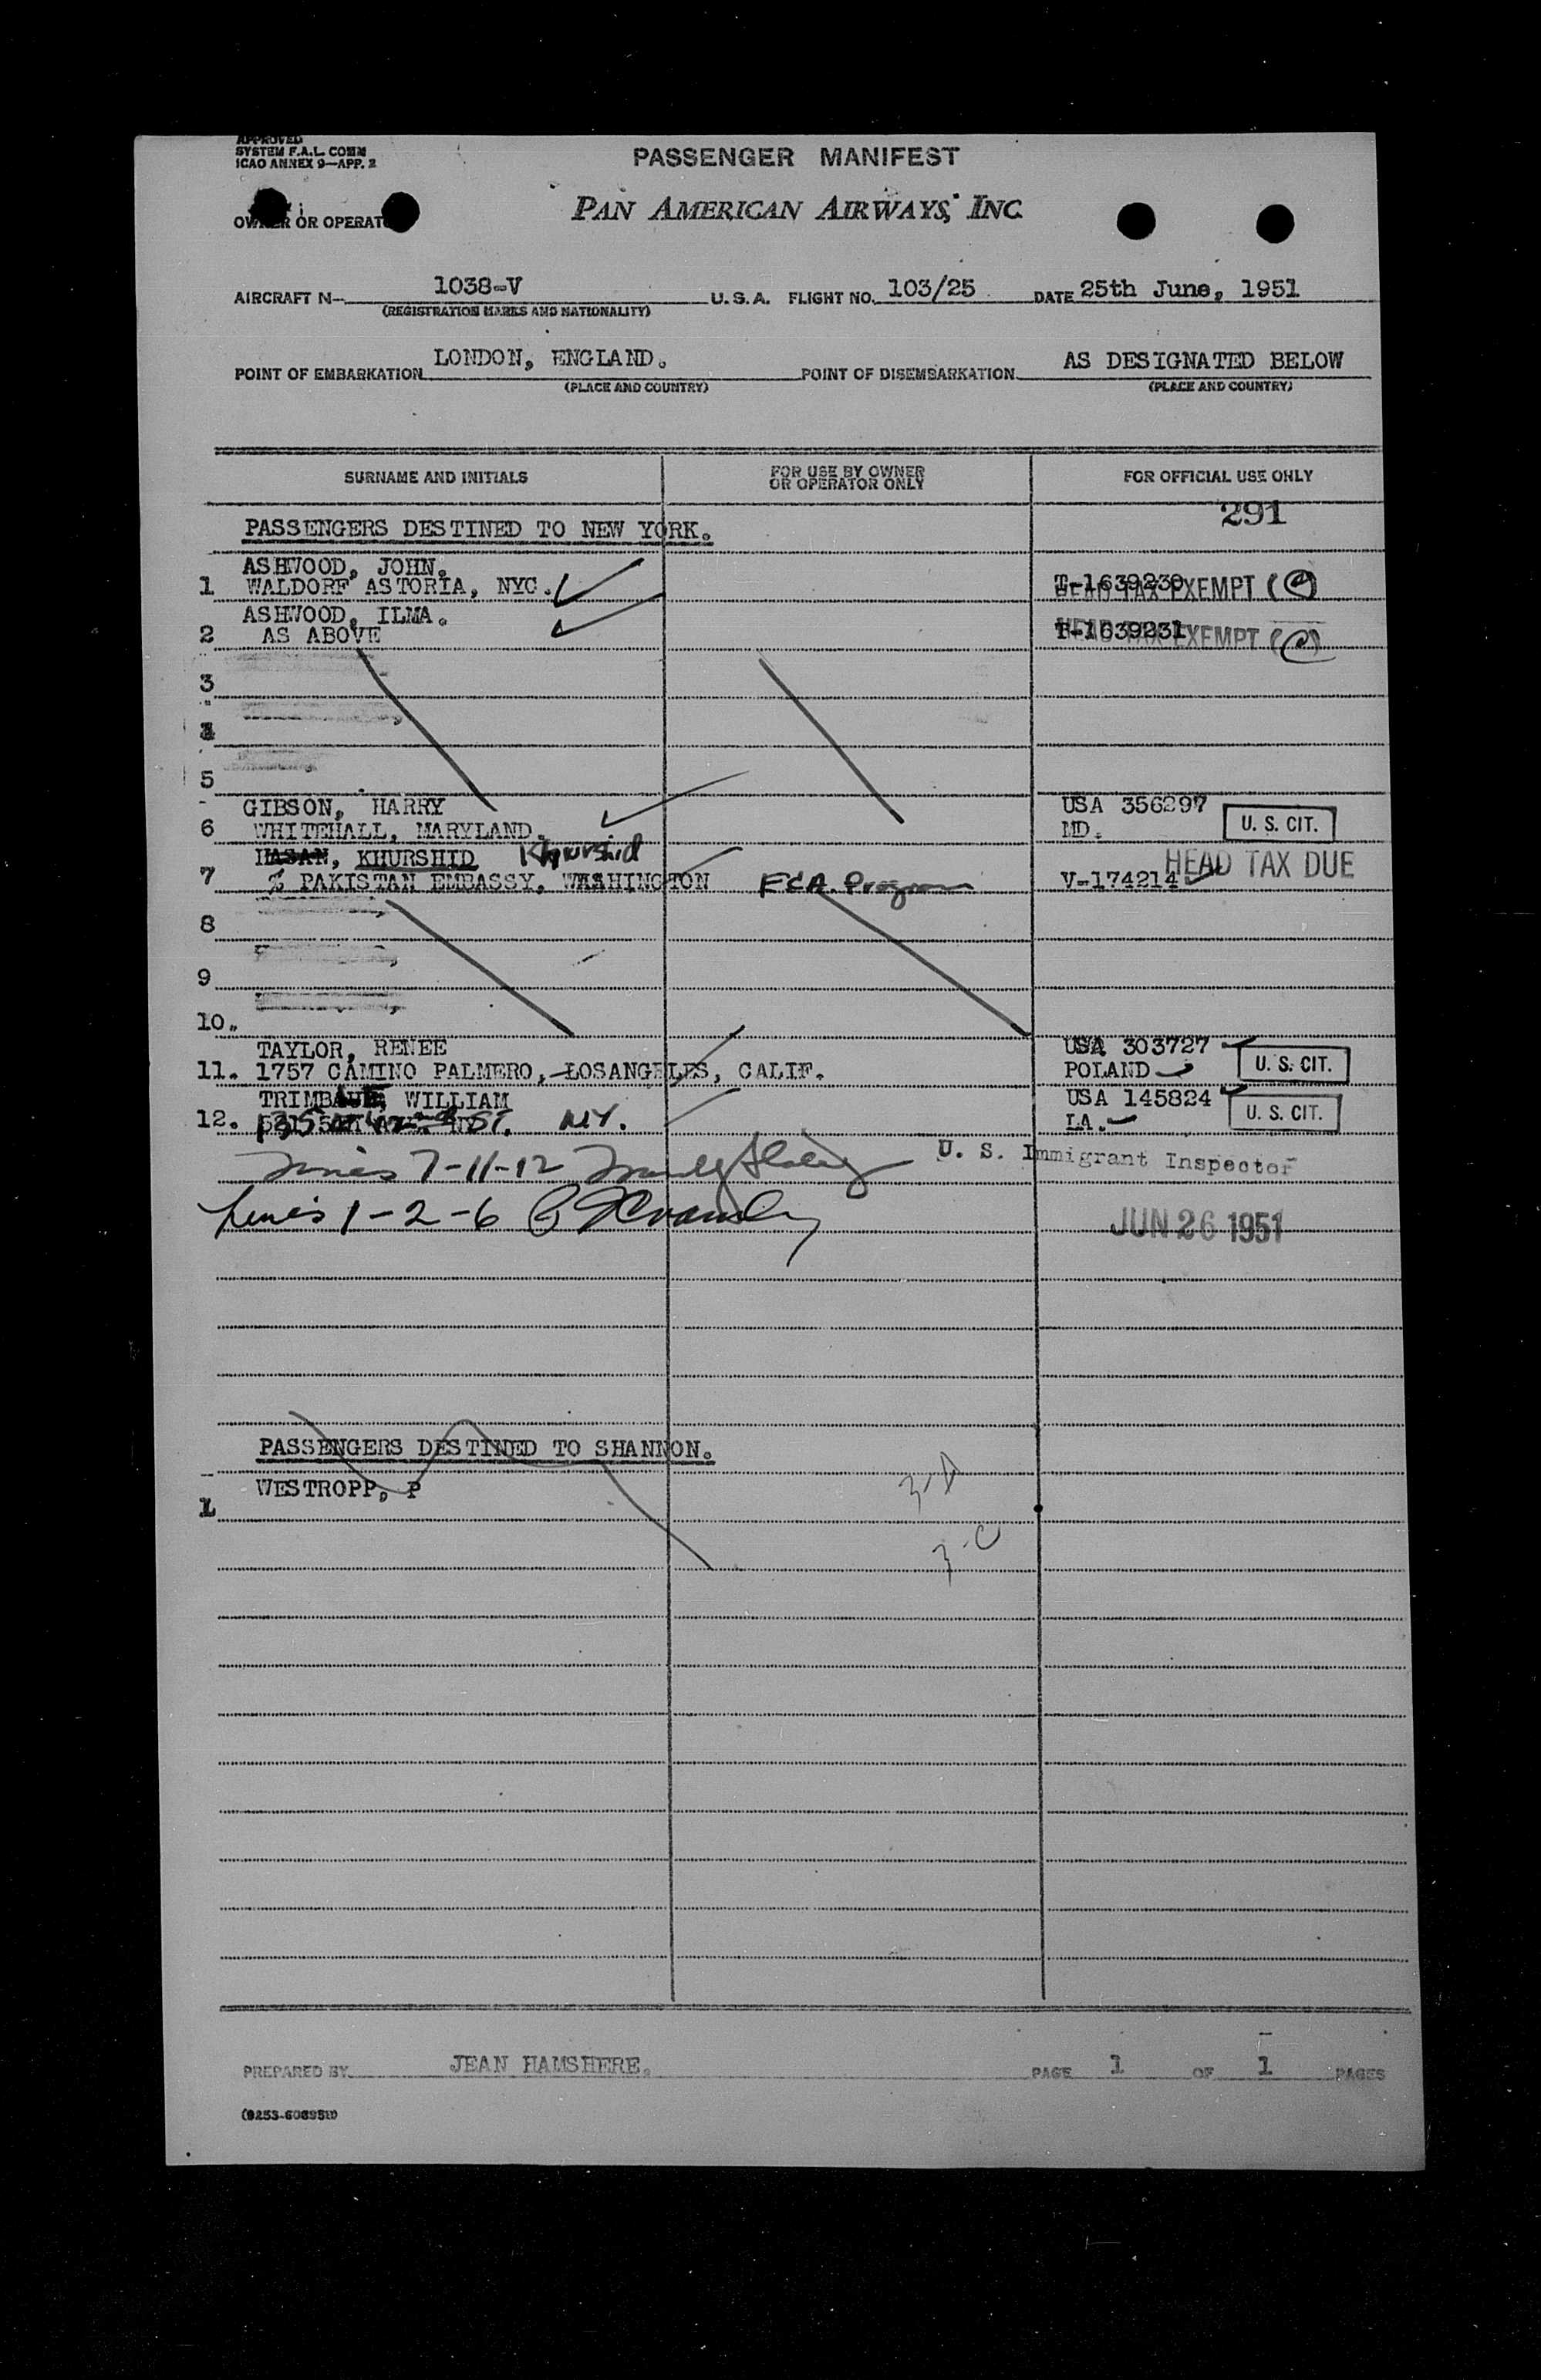 APPROVED
SYSTEM F.A.L. COMM
ICAO ANNEX 9—APP. 2
PASSENGER MANIFEST
OWNER OR OPERATOR
PAN AMERICAN AIRWAYS, INC.
AIRCRAFT N— 1038-V U.S.A. FLIGHT NO. 103/25 DATE 25th June, 1951
(REGISTRATION MARKS AND NATIONALITY)
POINT OF EMBARKATION LONDON, ENGLAND. POINT OF DISEMBARKATION AS DESIGNATED BELOW
(PLACE AND COUNTRY) (PLACE AND COUNTRY)
SURNAME AND INITIALS FOR USE BY OWNER OR OPERATOR ONLY FOR OFFICIAL USE ONLY
291
PASSENGERS DESTINED TO NEW YORK.
ASHWOOD, JOHN.
1 WALDORF ASTORIA, NYC. T-1639230 HEAD TAX EXEMPT
ASHWOOD, ILMA.
2 AS ABOVE T-1639231 HEAD TAX EXEMPT
3
4
5
GIBSON, HARRY USA 356297
6 WHITEHALL, MARYLAND. MD. U. S. CIT.
HASAN, KHURSHID Khurshid HEAD TAX DUE
7 % PAKISTAN EMBASSY, WASHINGTON ECA Program V-174214
8
9
10.
TAYLOR, RENEE USA 303727
11. 1757 CAMINO PALMERO, LOSANGELES, CALIF. POLAND U. S. CIT.
TRIMBALE, WILLIAM USA 145824
12. St. NY. LA. U. S. CIT.
Lines 7-11-12 U. S. Immigrant Inspector
Lines 1-2-6 JUN 26 1951
PASSENGERS DESTINED TO SHANNON.
WESTROPP, P 3-D
1
3-C
PREPARED BY JEAN HAMSHERE. PAGE 1 OF 1 PAGES